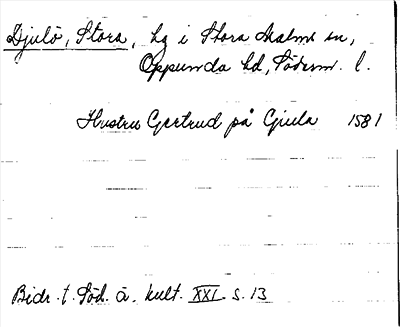 Djulö, Stora, hg i Stora Malms sn,
Oppunda hd, Söderm. l.
Hustru Gertrud på Giula 1581
Bidr. t. Söd. ä. kult. XXI s. 13